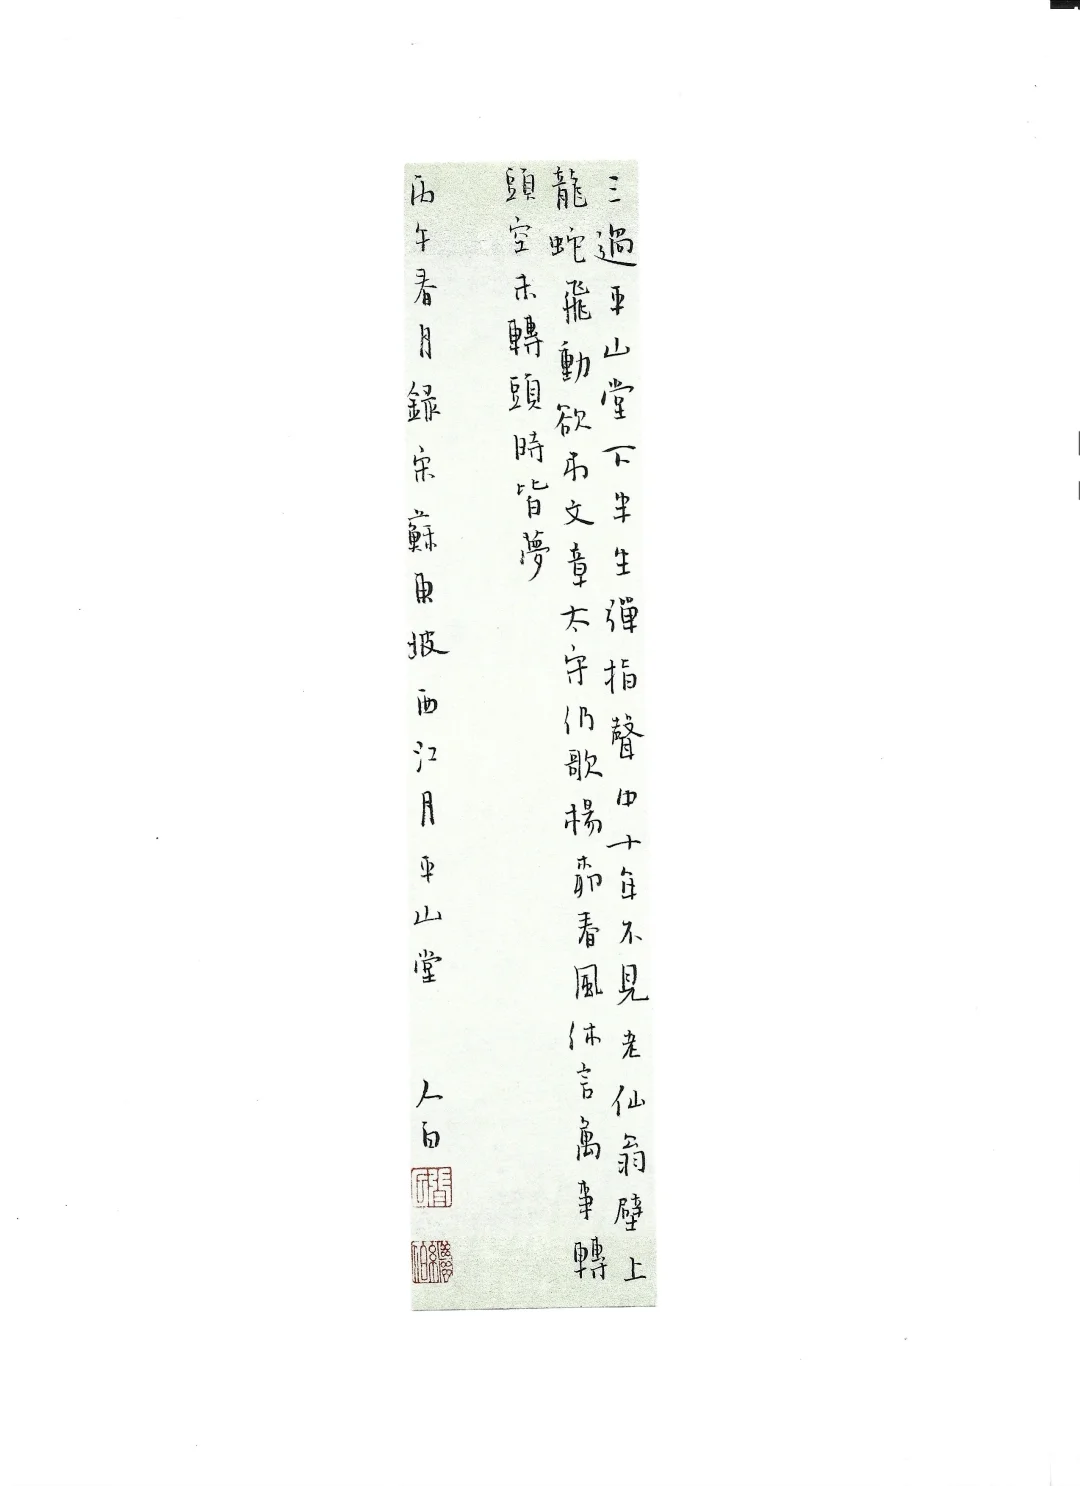 三過平山堂下半生彈指聲中十年不見老仙翁壁上
龍蛇飛動欲吊文章太守仍歌楊柳春風休言萬事轉
頭空未轉頭時皆夢
丙午春月錄宋蘇東坡西江月平山堂 人白